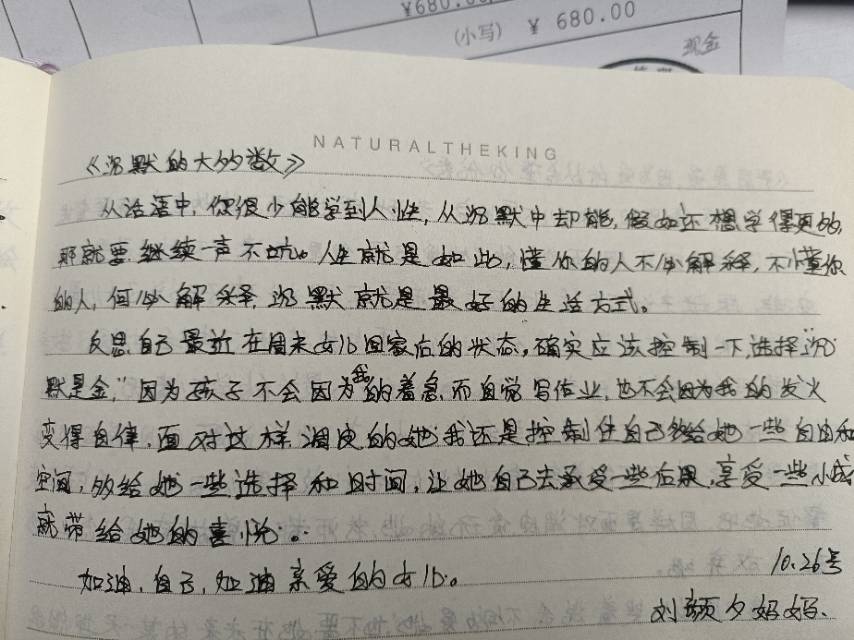 ¥680.00
(小写) ¥ 680.00
现金
NATURALTHEKING
《沉默的大多数》
从话语中,你很少能学到人性,从沉默中却能,假如还想学得更多,
那就要继续一声不吭。人生就是如此,懂你的人不必解释,不懂你
的人,何必解释,沉默就是最好的生活方式。
反思自己最近在周末女儿回家后的状态,确实应该控制一下,选择"沉
默是金,"因为孩子不会因为我的着急而自觉写作业,也不会因为我的发火
变得自律,面对这样调皮的她,我还是控制住自己多给她一些自由和
空间,多给她一些选择和时间,让她自己去承受一些后果,享受一些小成
就带给她的喜悦。
加油,自己,加油亲爱的女儿。
10.26号
刘颜夕妈妈.